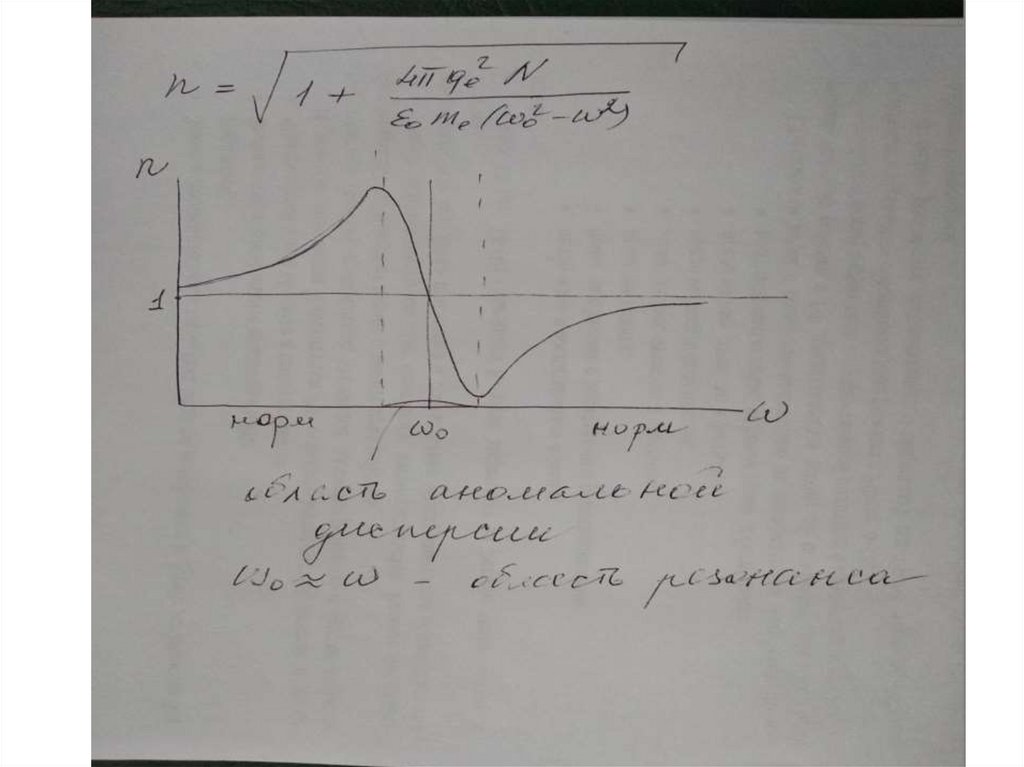 n = √(1 + 4π qe² N / ε₀ mₑ (ω₀² − ω²))
n
1
норм ω₀ норм ω
область аномальной
дисперсии
ω₀ ≈ ω – область резонанса